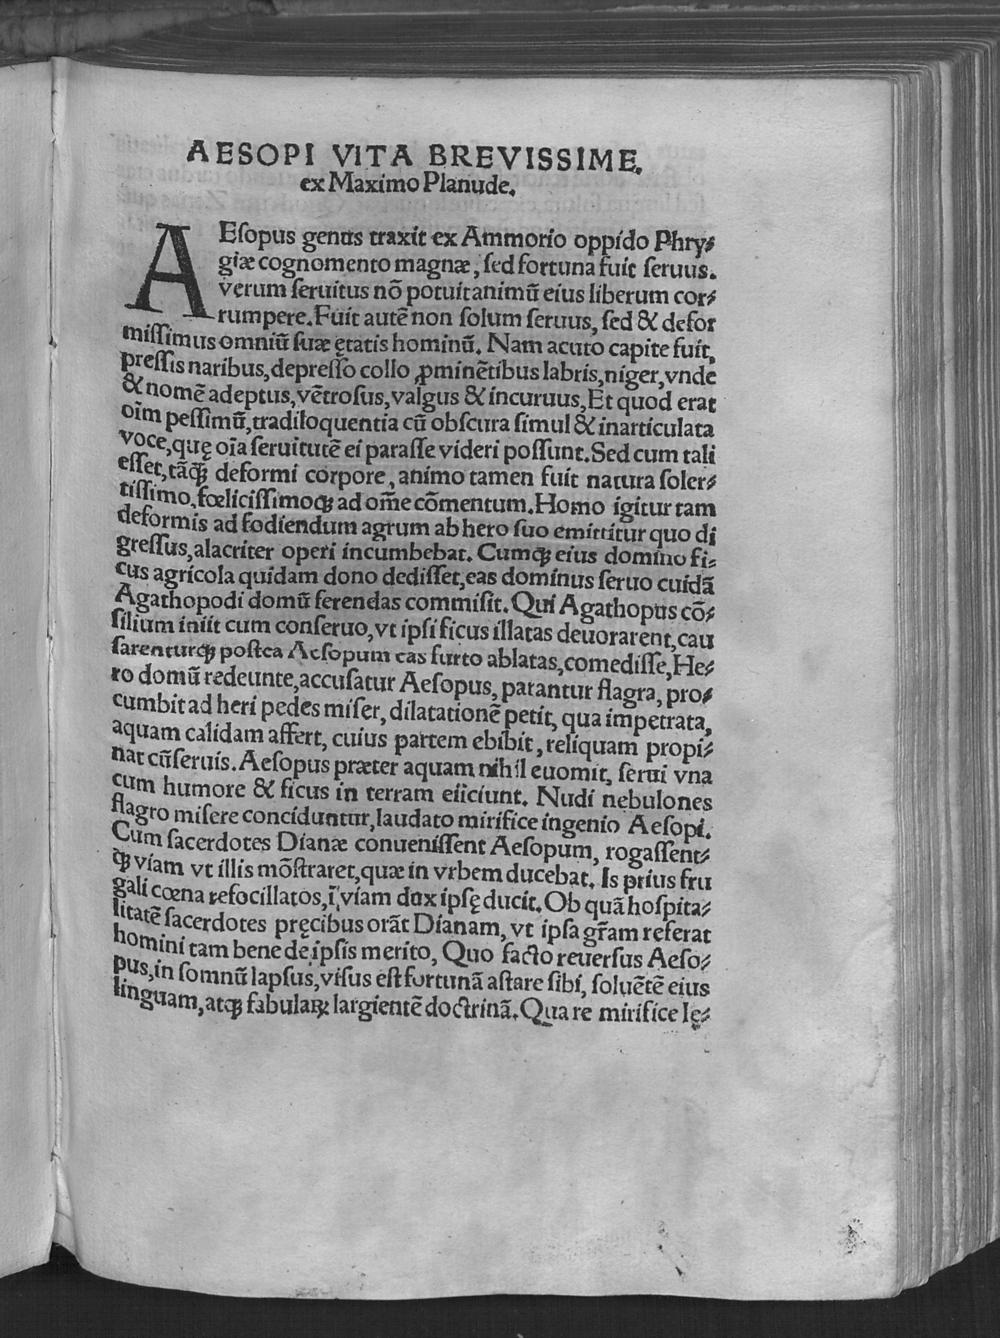 AESOPI VITA BREVISSIME.
ex Maximo Planude.
AEſopus genus traxit ex Ammorio oppido Phry⸗
giæ cognomento magnæ, ſed fortuna fuit ſeruus.
verum ſeruitus nõ potuit animũ eius liberum cor⸗
rumpere. Fuit autẽ non ſolum ſeruus, ſed & defor
miſſimus omniũ ſuæ ętatis hominũ. Nam acuto capite fuit,
preſſis naribus, depreſſo collo ꝓminẽtibus labris, niger, vnde
& nomẽ adeptus, vẽtroſus, valgus & incuruus, Et quod erat
oĩm peſſimũ, tradiloquentia cũ obſcura ſimul & inarticulata
voce, quę oĩa ſeruitutẽ ei paraſſe videri poſſunt. Sed cum tali
eſſet, tãꝗ deformi corpore, animo tamen fuit natura ſoler⸗
tiſſimo, fœliciſſimoꝗ ad om̃e cõmentum. Homo igitur tam
deformis ad fodiendum agrum ab hero ſuo emittitur quo di
greſſus, alacriter operi incumbebat. Cumꝗ eius domino fi⸗
cus agricola quidam dono dediſſet, eas dominus ſeruo cuidã
Agathopodi domũ ferendas commiſit. Qui Agathopus cõ⸗
ſilium iniit cum conſeruo, vt ipſi ficus illatas deuorarent, cau
ſarenturꝗ poſtea Aeſopum eas furto ablatas, comediſſe, He⸗
ro domũ redeunte, accuſatur Aeſopus, parantur flagra, pro⸗
cumbit ad heri pedes miſer, dilatationẽ petit, qua impetrata,
aquam calidam affert, cuius partem ebibit, reliquam propi⸗
nat cũſeruis. Aeſopus præter aquam nihil euomit, ſerui vna
cum humore & ficus in terram eiiciunt. Nudi nebulones
flagro miſere conciduntur, laudato mirifice ingenio Aeſopi.
Cum ſacerdotes Dianæ conueniſſent Aeſopum, rogaſſent⸗
ꝗ viam vt illis mõſtraret, quæ in vrbem ducebat. Is prius fru
gali cœna refocillatos, ĩ viam dux ipſę ducit. Ob quã hoſpita⸗
litatẽ ſacerdotes pręcibus orãt Dianam, vt ipſa gr̃am referat
homini tam bene de ipſis merito, Quo facto reuerſus Aeſo⸗
pus, in ſomnũ lapſus, viſus eſt fortunã aſtare ſibi, ſoluẽtẽ eius
linguam, atꝗ fabulaꝝ largientẽ doctrinã. Qua re mirifice lę⸗